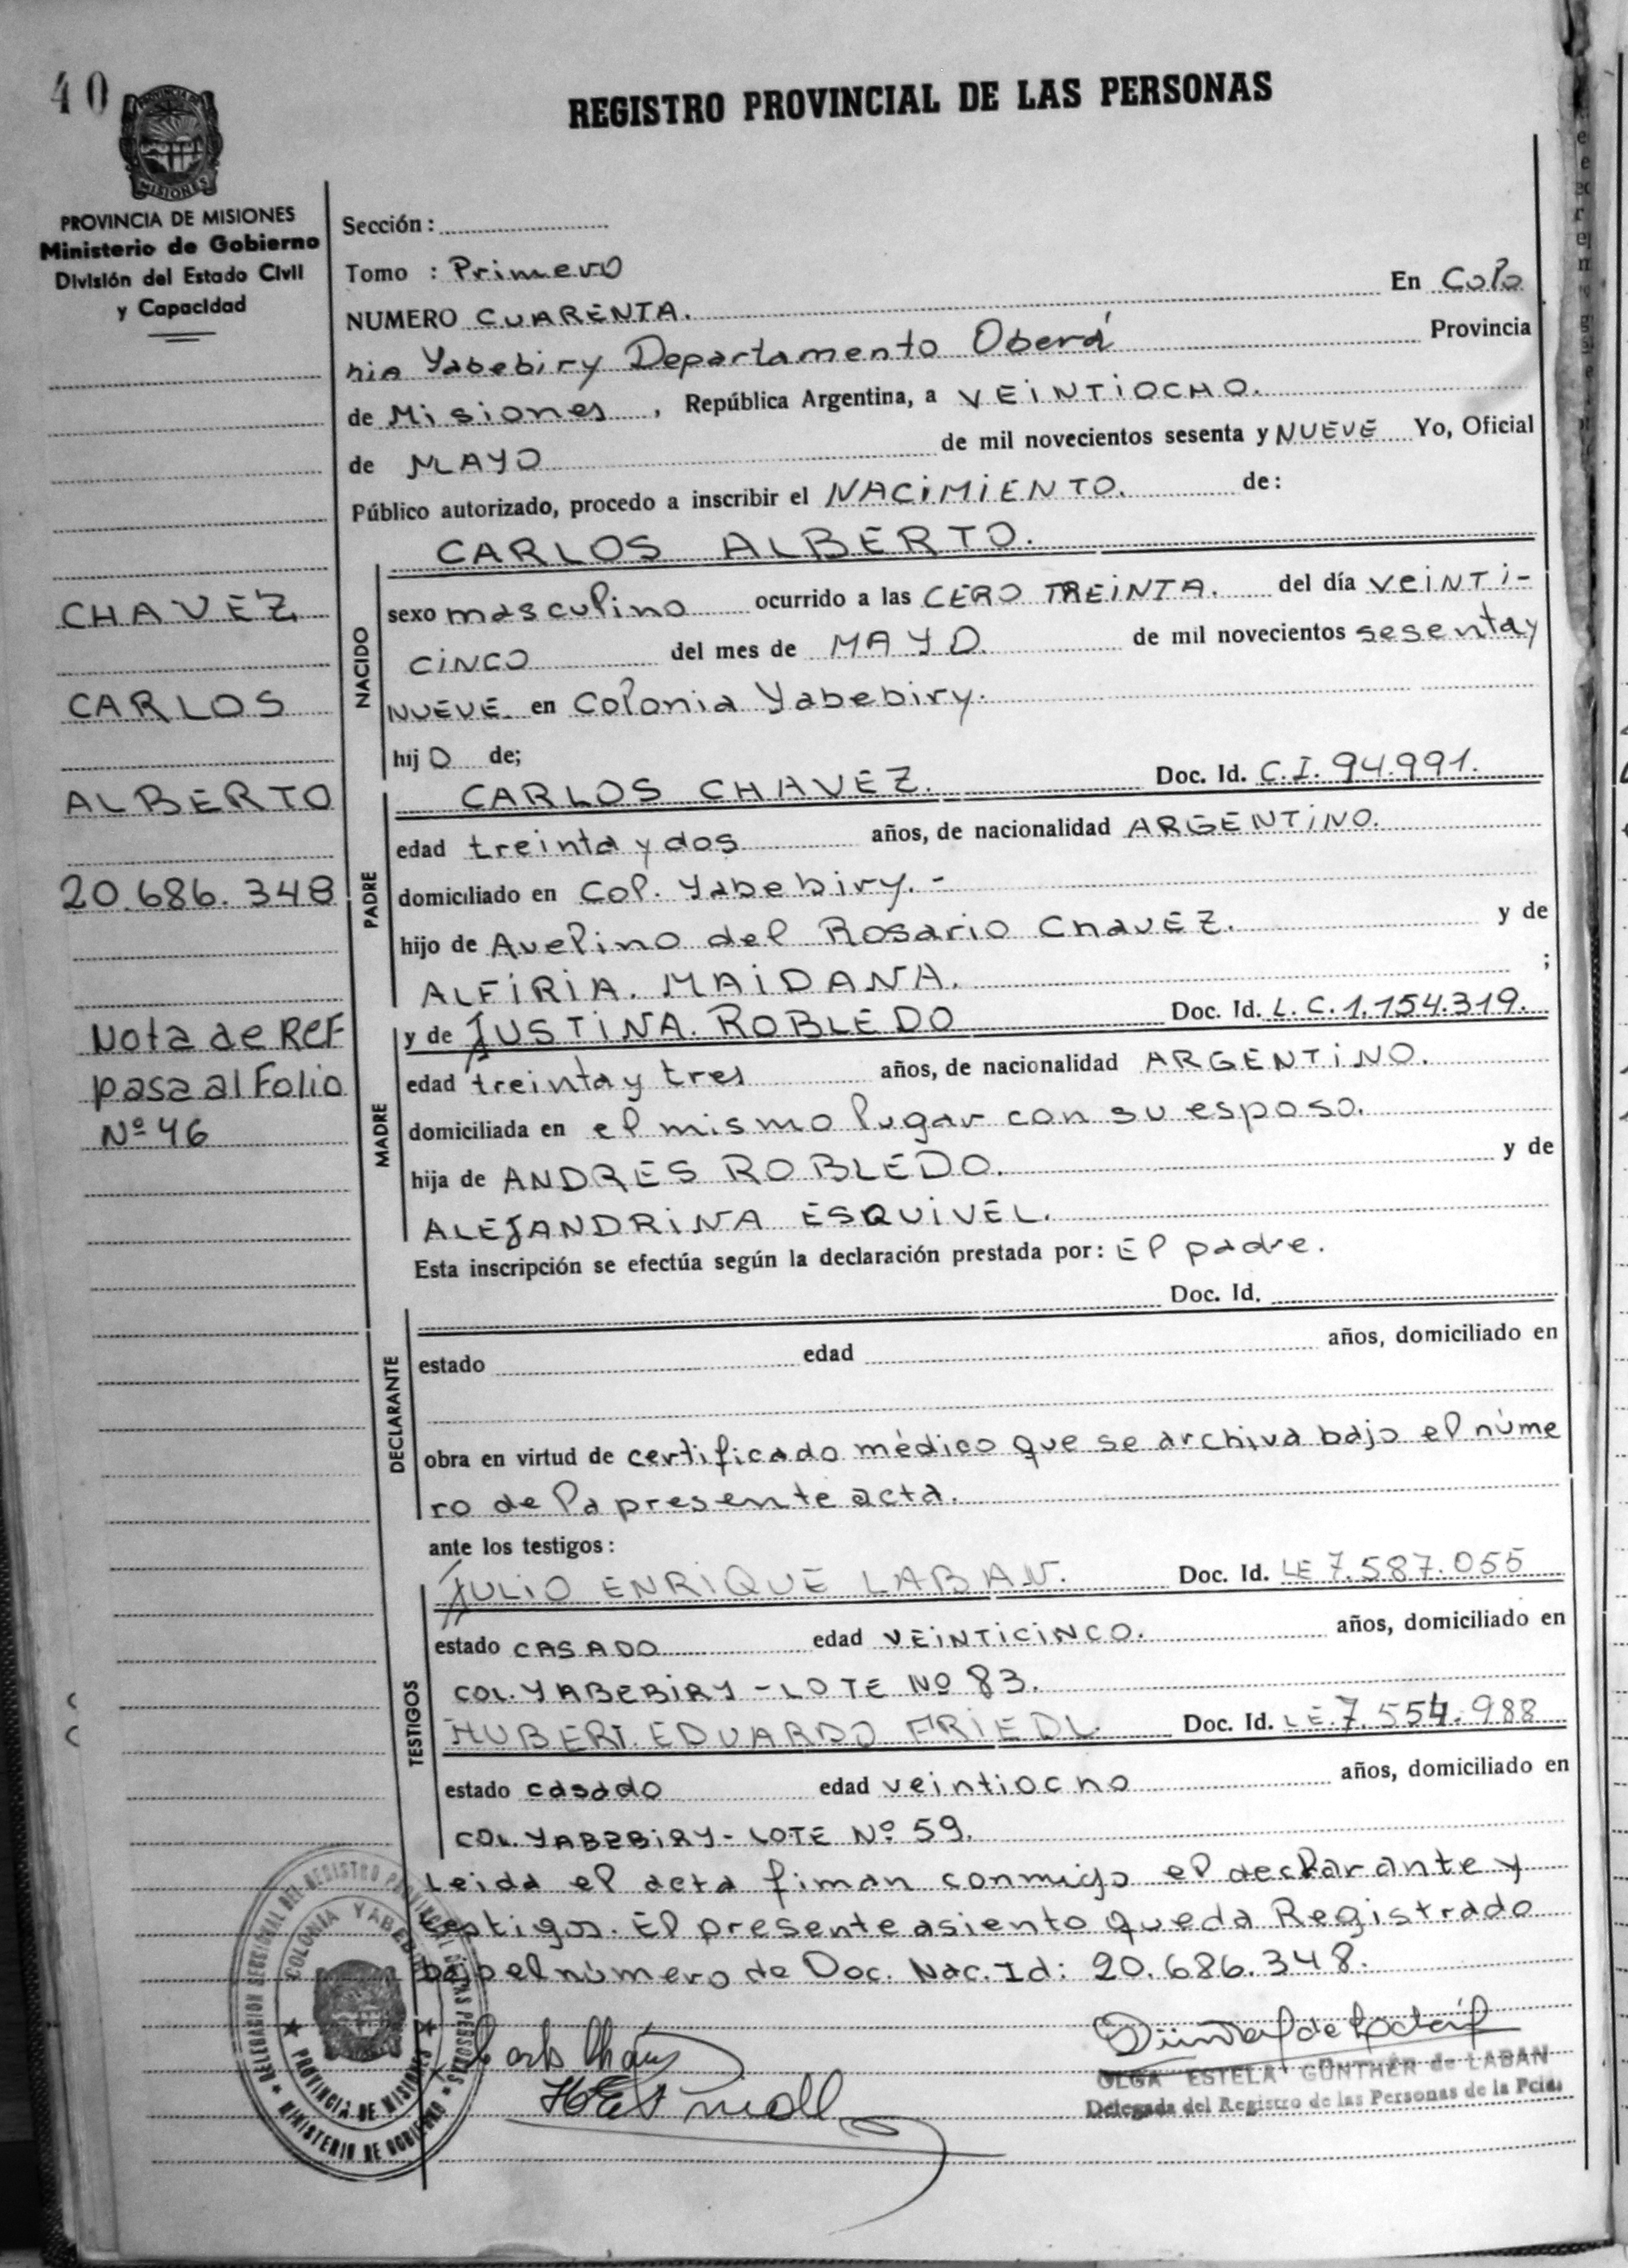 40
REGISTRO PROVINCIAL DE LAS PERSONAS
MISIONES
PROVINCIA DE MISIONES
Ministerio de Gobierno
División del Estado Civil
y Capacidad
CHAVEZ
CARLOS
ALBERTO
20.686.348
Nota de REF
pasa al Folio
Nº 46
Sección:
Tomo : Primero
NUMERO CUARENTA. En Colo
nia Yabebiry Departamento Oberá Provincia
de Misiones, República Argentina, a VEINTIOCHO.
de MAYO de mil novecientos sesenta y NUEVE Yo, Oficial
Público autorizado, procedo a inscribir el NACIMIENTO. de:
CARLOS ALBERTO.
NACIDO
sexo masculino ocurrido a las CERO TREINTA. del día VEINTI-
CINCO del mes de MAYO. de mil novecientos sesenta y
NUEVE. en Colonia Yabebiry.
hijo de;
PADRE
CARLOS CHAVEZ. Doc. Id. C.I. 94.991.
edad treinta y dos años, de nacionalidad ARGENTINO.
domiciliado en Col. Yabebiry.-
hijo de Avelino del Rosario Chavez. y de
ALFIRIA. MAIDANA. ;
MADRE
y de JUSTINA. ROBLEDO Doc. Id. L.C. 1.154.319.
edad treinta y tres años, de nacionalidad ARGENTINO.
domiciliada en el mismo lugar con su esposo.
hija de ANDRES ROBLEDO. y de
ALEJANDRINA ESQUIVEL.
Esta inscripción se efectúa según la declaración prestada por: El padre.
DECLARANTE
Doc. Id.
estado edad años, domiciliado en
obra en virtud de certificado médico que se archiva bajo el núme
ro de la presente acta.
ante los testigos:
TESTIGOS
JULIO ENRIQUE LABAN. Doc. Id. LE 7.587.055
estado CASADO edad VEINTICINCO. años, domiciliado en
COL. YABEBIRY - LOTE Nº 83.
HUBERT. EDUARDO FRIEDL. Doc. Id. LE. 7.554.988
estado casado edad veintiocho años, domiciliado en
COL. YABEBIRY - LOTE Nº 59.
Leida el acta fiman conmigo el declarante y
testigos. El presente asiento queda Registrado
bajo el número de Doc. Nac. Id: 20.686.348.
DELEGACION SECCIONAL DEL REGISTRO PROVINCIAL DE LAS PERSONAS
COLONIA YABEBIRY
PROVINCIA DE MISIONES
MINISTERIO DE GOBIERNO
OLGA ESTELA GÜNTHER de LABAN
Delegada del Registro de las Personas de la Pcia.